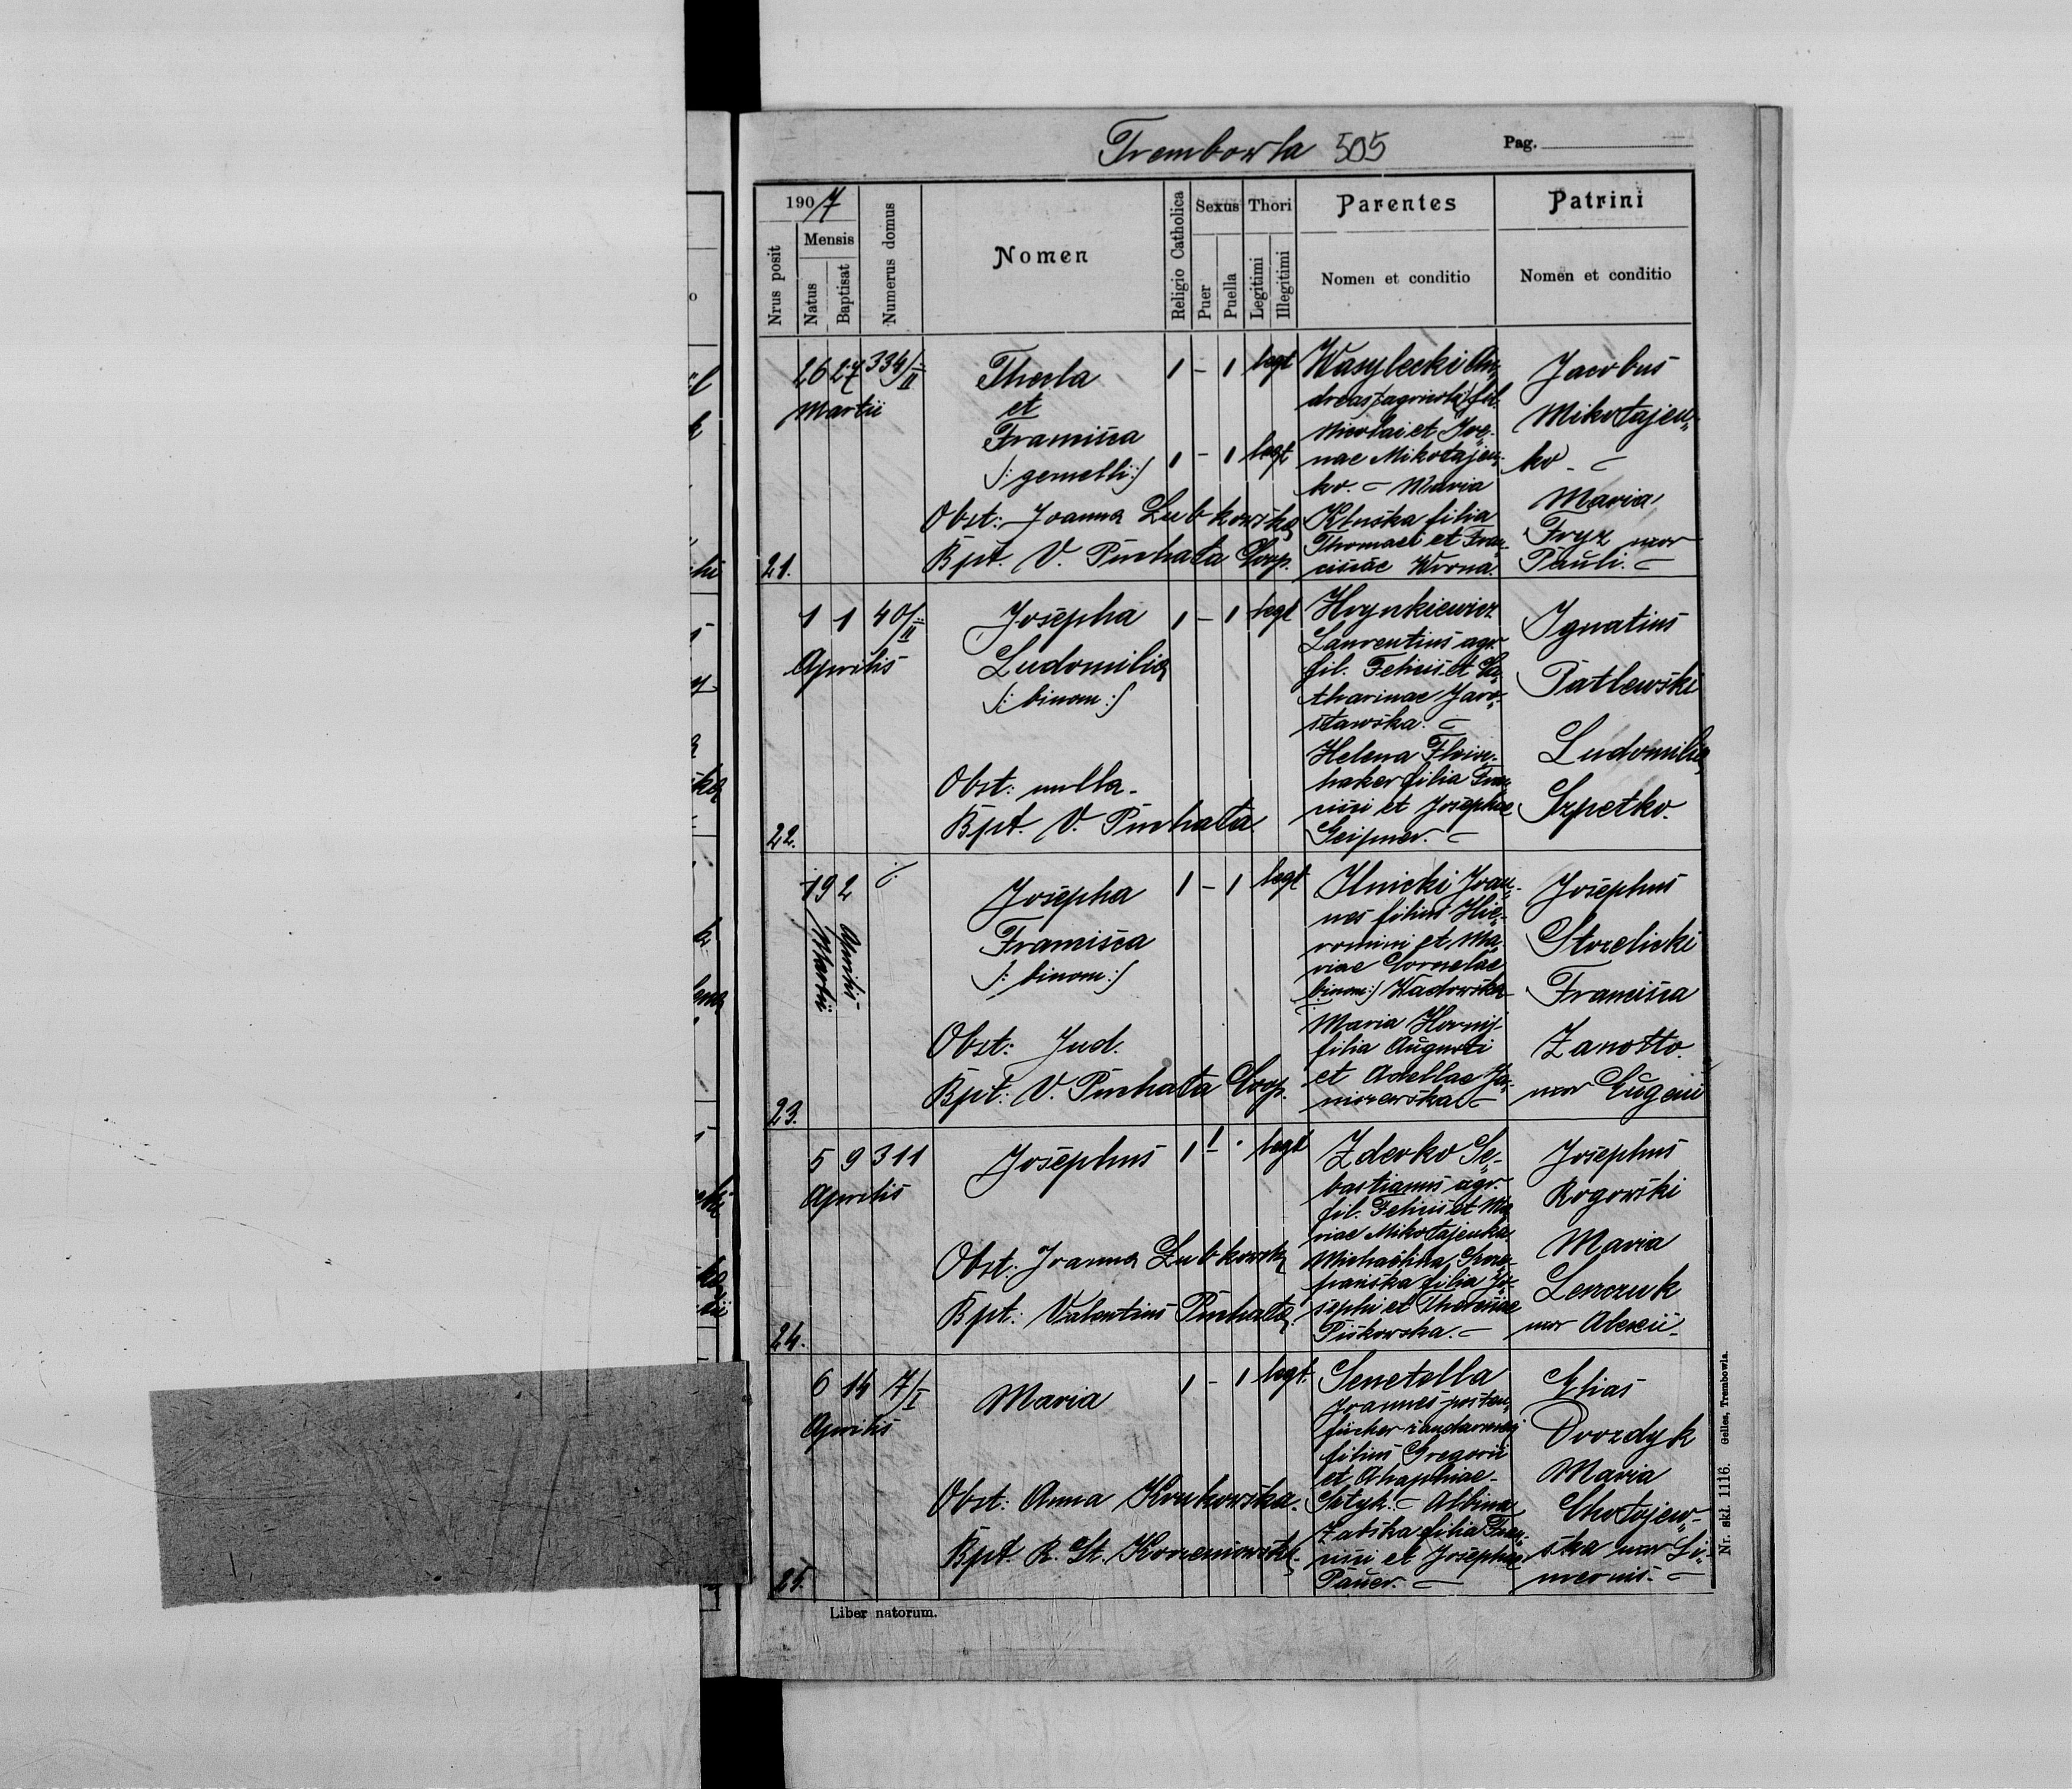 Trembowla 505 Pag.
1907
Nrus posit
Mensis
Natus
Baptisat
Numerus domus
Nomen
Religio Catholica
Sexus
Puer
Puella
Thori
Legitimi
Illegitimi
Parentes
Nomen et conditio
Patrini
Nomen et conditio
21.
26 27 334/II
Martii
Thecla
et
Francisca
/: gemelli :/
Obst: Joanna Lubkowska
Bpt. V. Puchała Coop.
1 – 1 legt
1 – 1 legt
Wasylecki An-
dreas agricola fil.
Nicolai et Ire-
nae Mikołajen-
ko. – Maria
Kluska filia
Thomae et Fran-
ciscae Wrona.
Jacobus
Mikołajen-
ko –
Maria
Fryz uxor
Pauli. –
22.
1 1 40/II
Aprilis
Josepha
Ludomilia
/: binom :/
Obst: nulla.
Bpt. V. Puchała
1 – 1 legt
Hrynkiewicz
Laurentius agr.
fil. Felicis et Ca-
tharinae Jaro-
sławska. –
Helena
haker filia Fran-
cisci et Josephae
Ignatius
Patlewski
Ludomilia
Szpetko.
23.
19 2
Martii
Aprilis
Josepha
Francisca
/: binom :/
Obst: Jud.
Bpt: V. Puchała Coop.
1 – 1 legt
Ilnicki Joan-
nes filius Hie-
romini et Ma-
riae Cornelae
binom :/ Wadowska
Maria
filia Augusti
et Adellae Ja-
niszewska –
Josephus
Strzelicki
Francisca
Zanotto
uxor Eugenii
24.
5 9 311
Aprilis
Josephus
Obst: Joanna Lubkowsk
Bpt: Valentinus Puchała
1 1 – legt
Zderko Se-
bastianus agr.
fil. Felicis et Ma-
riae Mikołajenko.
Michaelina Szcze-
pańska filia Jo-
sephi et Theresiae
Piskowska. –
Josephus
Rogowski
Maria
Lenczuk
uxor Alexii –
25.
6 14 7/I
Aprilis
Maria
Obst: Anna Krukowska.
Bpt. R. St. Korzeniowski
1 – 1 legt.
Senetella
Joannes posten-
führer żandarmerji
filius Gregorii
et Ahaphiae
Sztyk. – Albina
Zabska filia Fran-
cisci et Josephae
Pauer. –
Elias
Drozdyk
Maria
Chołojew-
ska uxor Si-
meonis. –
Liber natorum.
Nr. skł. 1116. Gelles, Trembowla.